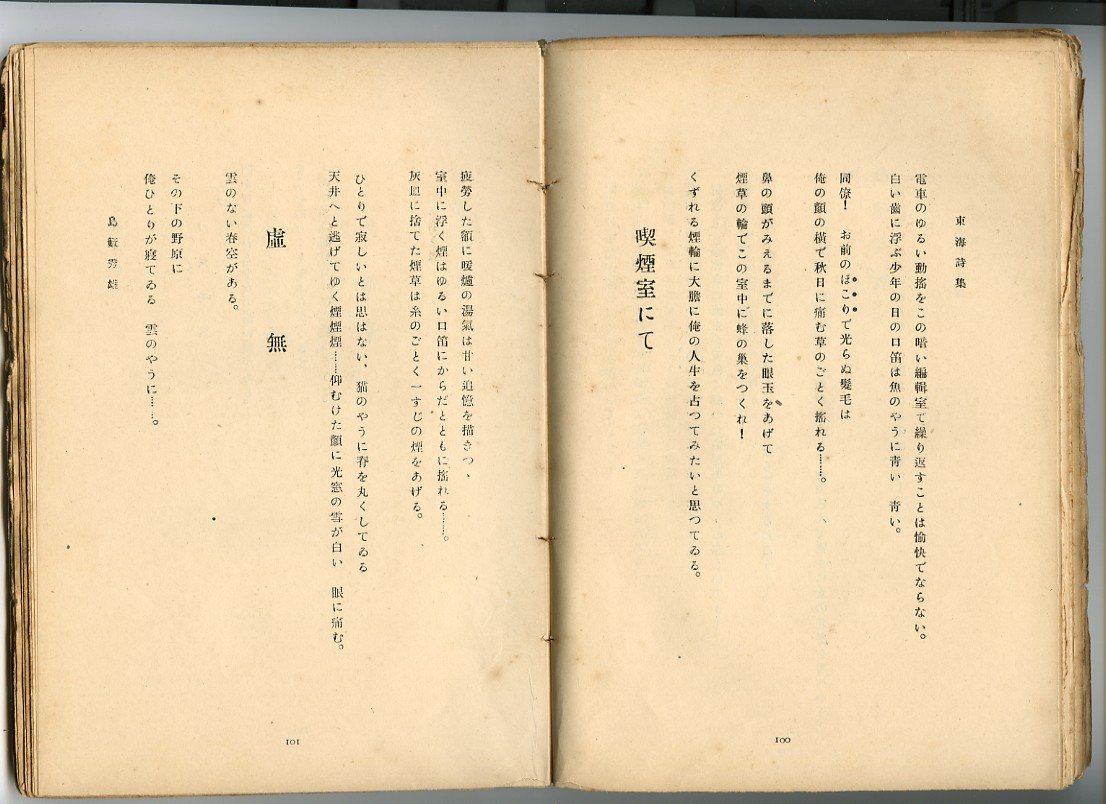 東海詩集
電車のゆるい動搖をこの暗い編輯室で繰り返すことは愉快でならない。
白い齒に浮ぶ少年の日の口笛は魚のやうに靑い　靑い。
同僚！　お前のほこりで光らぬ髮毛は
俺の顏の橫で秋日に痛む草のごとく搖れる……。
鼻の頭がみえるまでに落した眼玉をあげて
煙草の輪でこの室中に蜂の巢をつくれ！
くずれる煙輪に大膽に俺の人生を占つてみたいと思つてゐる。
喫煙室にて
100
疲勞した額に暖爐の湯氣は甘い追憶を描きつ、
室中に浮く煙はゆるい口笛にからだとともに搖れる……。
灰皿に捨てた煙草は糸のごとく一すじの煙をあげる。
ひとりで寂しいとは思はない、猫のやうに脊を丸くしてゐる
天井へと逃げてゆく煙煙煙……仰むけた顏に光窓の雪が白い　眼に痛む。
虛無
雲のない春空がある。
その下の野原に
俺ひとりが寢てゐる　雲のやうに……。
島敏秀雄
101